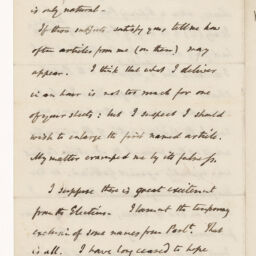 is only natural –
If these subjects satisfy you, tell me how
often articles from me (on them) may
appear. I think that what I deliver
in an hour is not too much for one
of your sheets: but I suspect I should
wish to enlarge the first named article.
My matter cramped me by its
I suppose there is great excitement
from the Elections. I lament the temporary
exclusion of some names from Parlt. That
is all. I have long ceased to hope